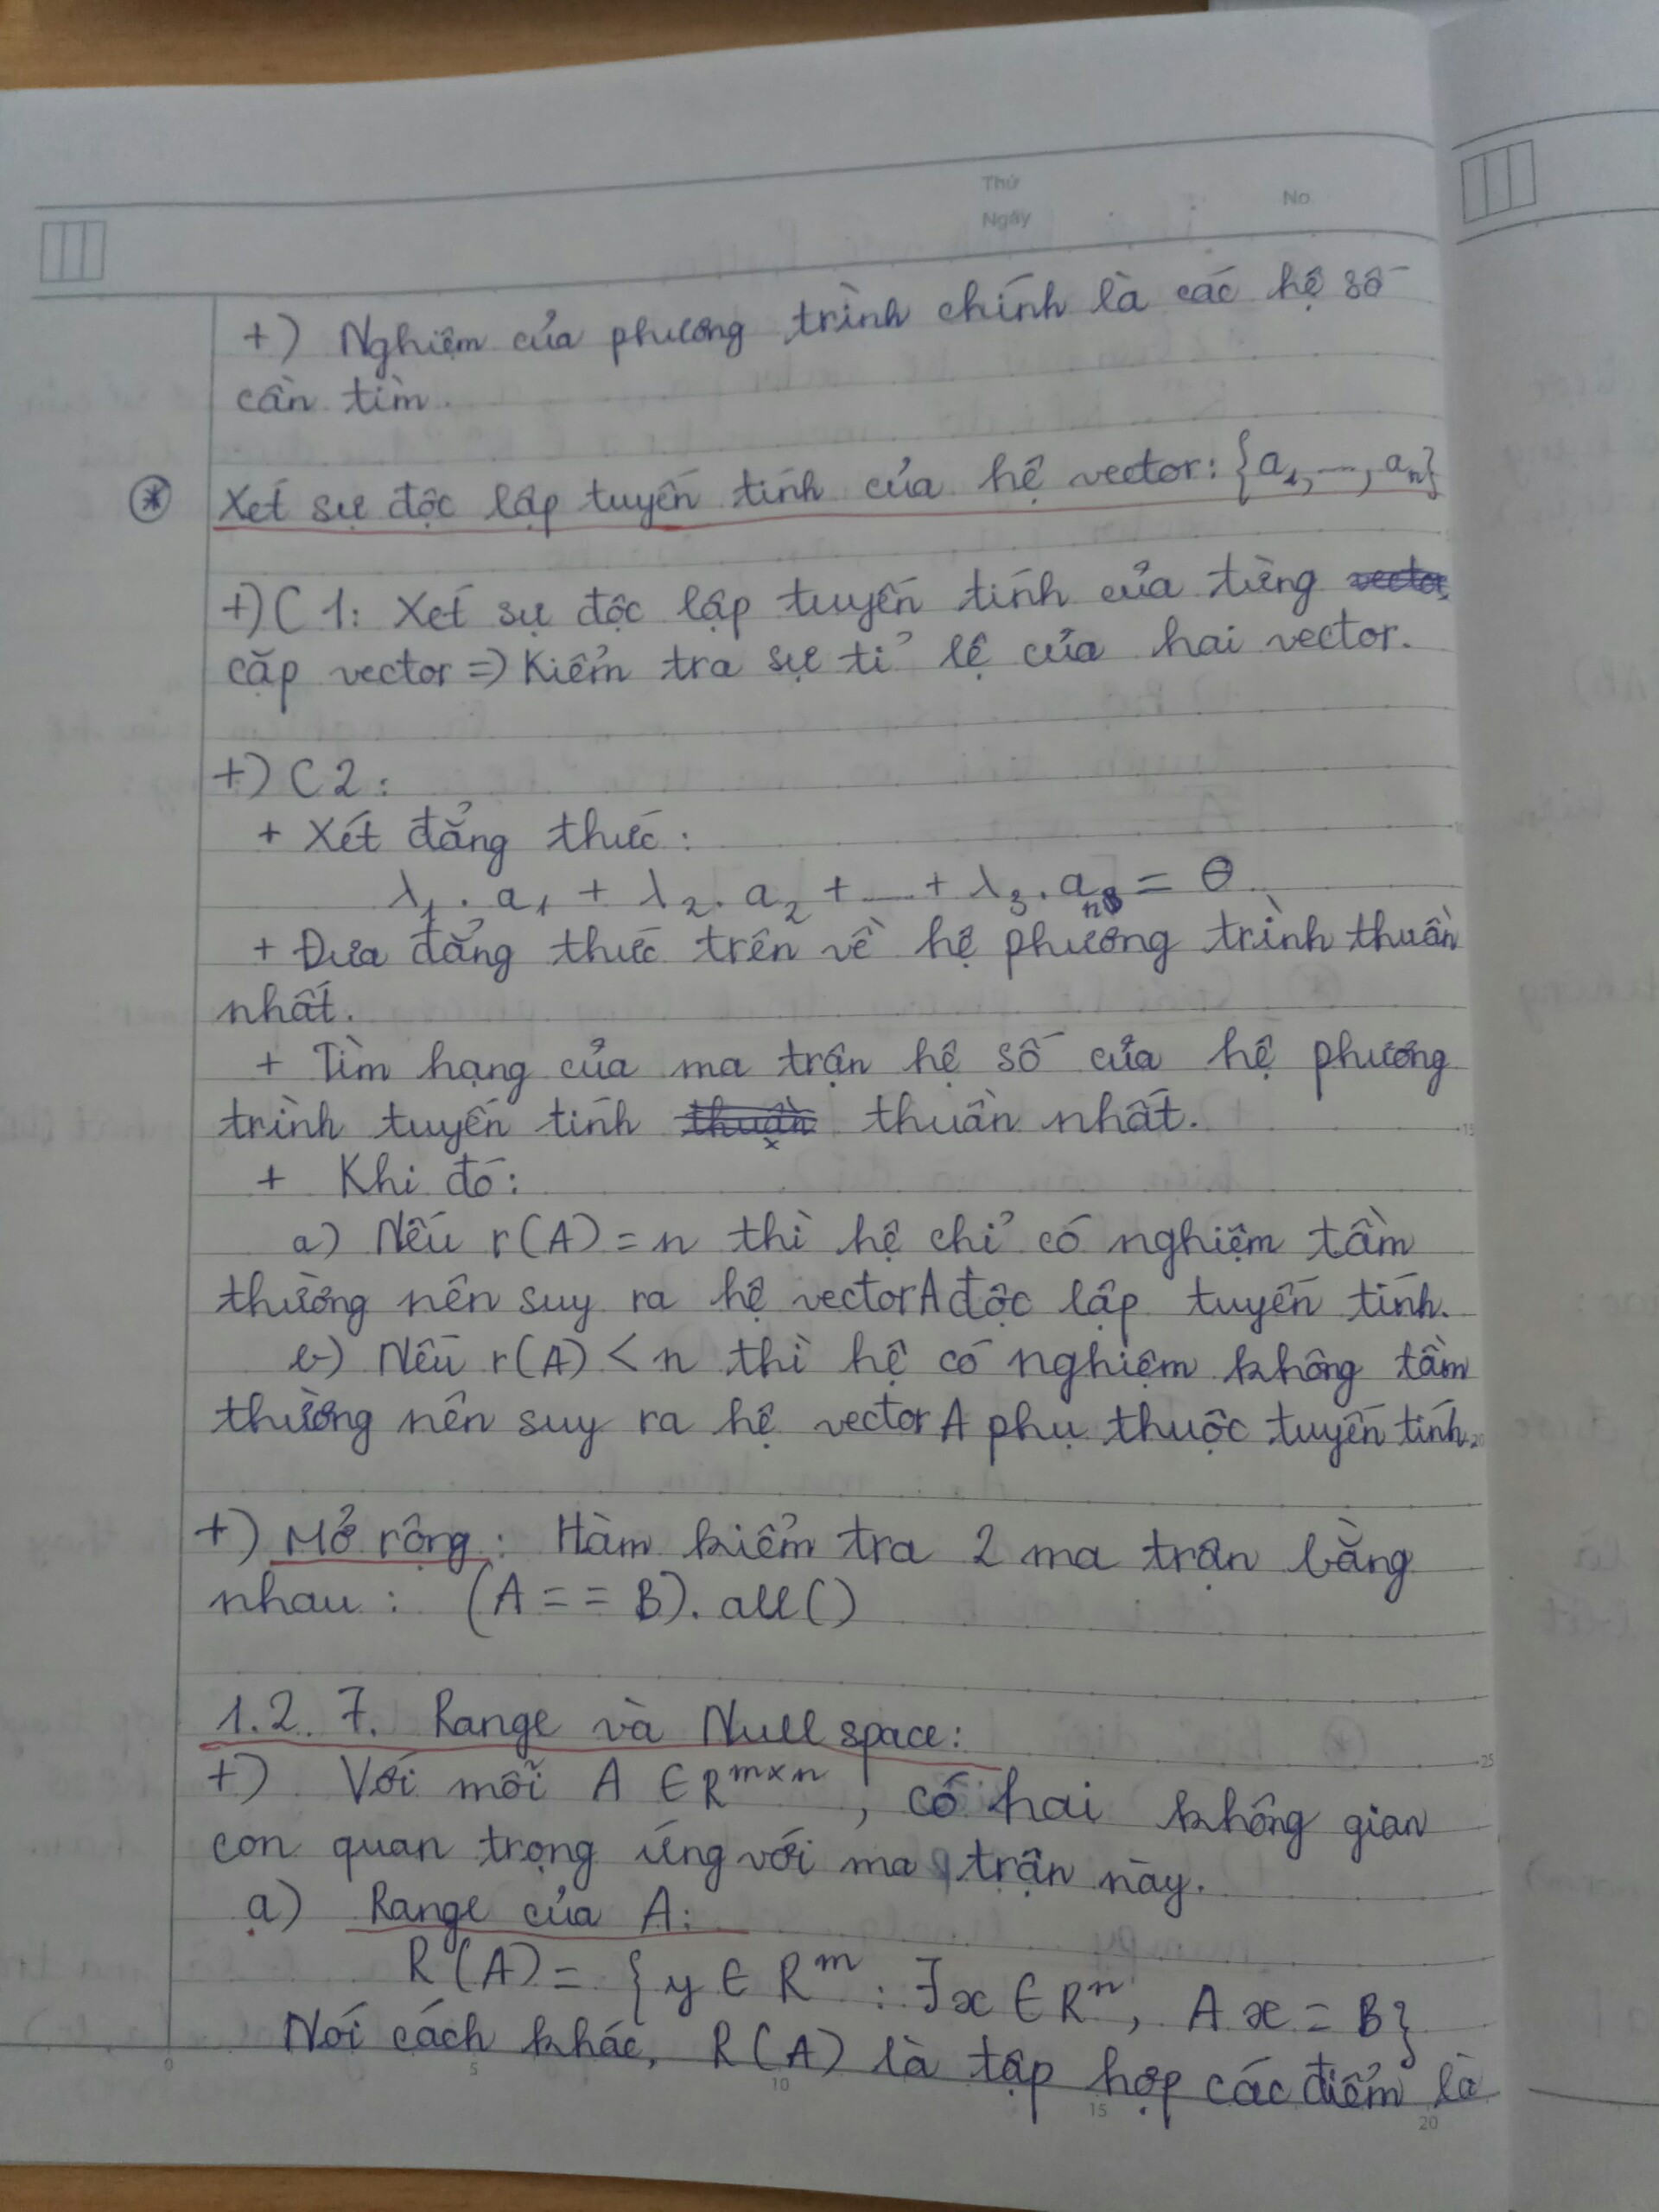 Thứ
Ngày
No.
+) Nghiệm của phương trình chính là các hệ số
cần tìm.
⊛ Xét sự độc lập tuyến tính của hệ vector: {a₁, ..., aₙ}
+) C1: Xét sự độc lập tuyến tính của từng vector
cặp vector => Kiểm tra sự tỉ lệ của hai vector.
+) C2:
+ Xét đẳng thức:
λ₁. a₁ + λ₂. a₂ + ... + λ₃. aₙ = θ
+ Đưa đẳng thức trên về hệ phương trình thuần
nhất.
+ Tìm hạng của ma trận hệ số của hệ phương
trình tuyến tính thuần thuần nhất.
+ Khi đó:
a) Nếu r(A) = n thì hệ chỉ có nghiệm tầm
thường nên suy ra hệ vector A độc lập tuyến tính.
b) Nếu r(A) < n thì hệ có nghiệm không tầm
thường nên suy ra hệ vector A phụ thuộc tuyến tính.
+) Mở rộng: Hàm kiểm tra 2 ma trận bằng
nhau: (A == B). all()
1.2.7. Range và Null space:
+) Với mỗi A ∈ Rᵐˣⁿ, có hai không gian
con quan trọng ứng với ma trận này.
a) Range của A:
R(A) = {y ∈ Rᵐ : ∃x ∈ Rⁿ, Ax = B}
Nói cách khác, R(A) là tập hợp các điểm là
0 5 10 15 20